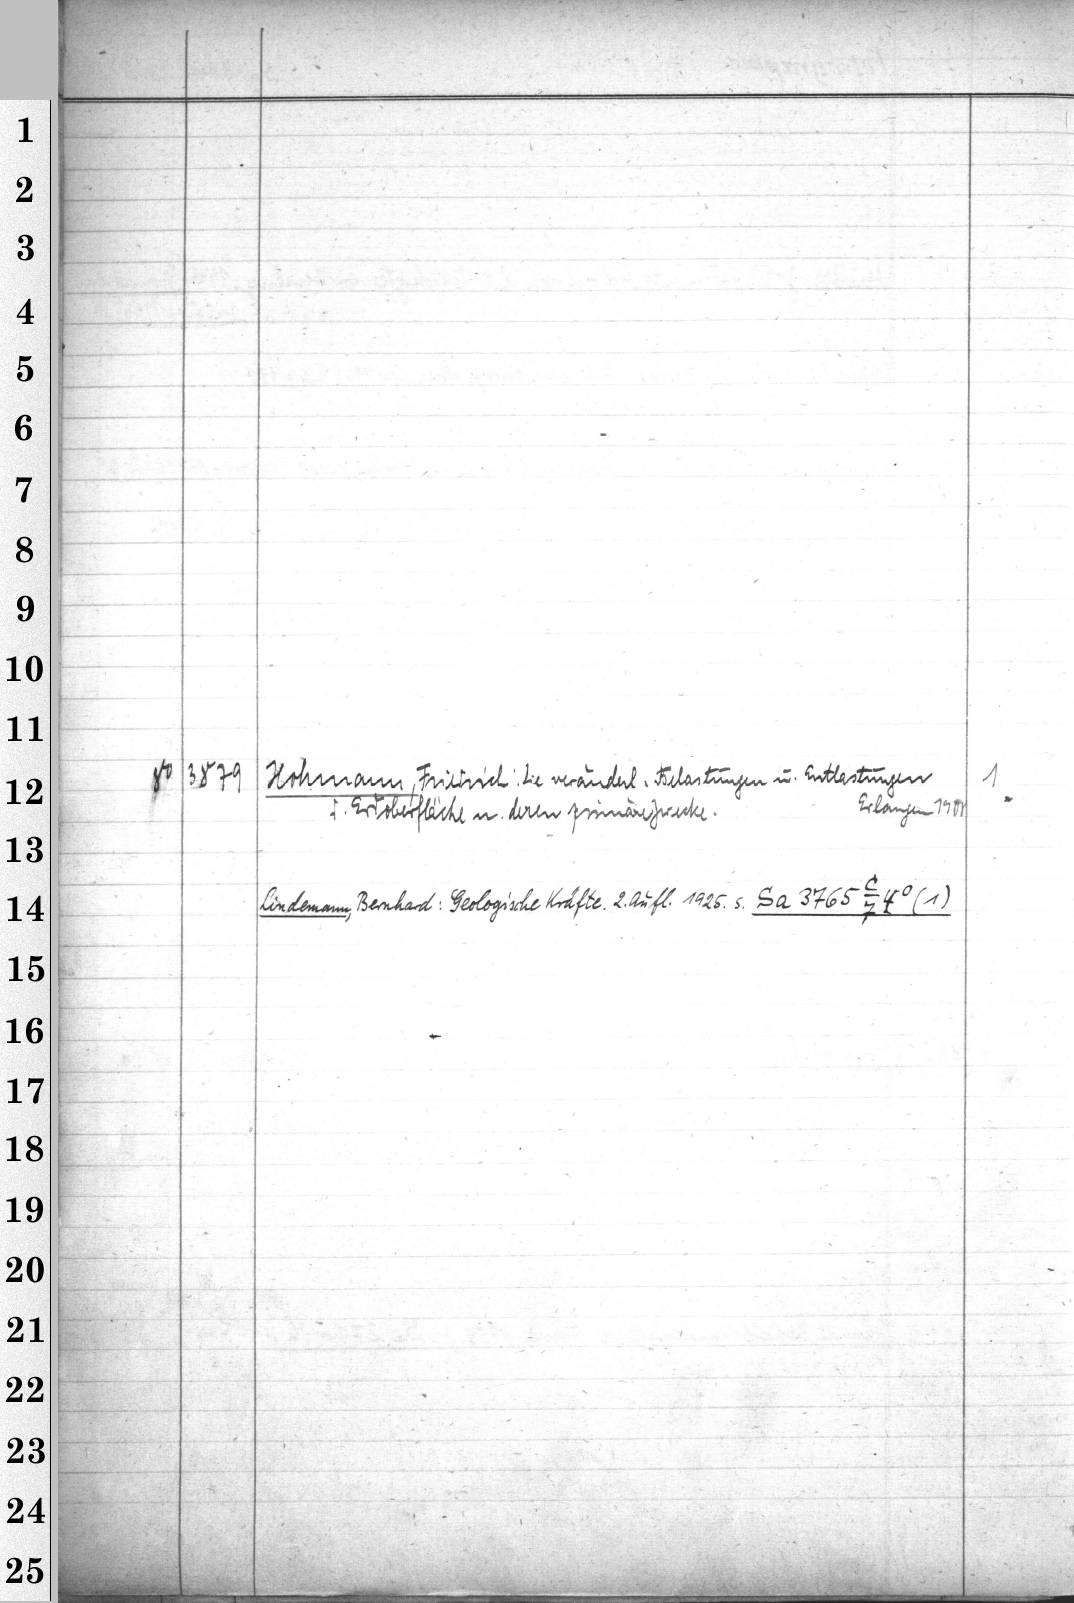 1
2
3
4
5
6
7
8
9
10
11
12
8° 3879 Hohmann, Friedrich: Die veränderl. Belastungen u. Entlastungen 1
d. Erdoberfläche u. deren Erlangen
13
14
Lindemann, Bernhard: Geologische Kräfte. 2. Aufl. 1925. s. Sa 3765 4° (1)
15
16
17
18
19
20
21
22
23
24
25